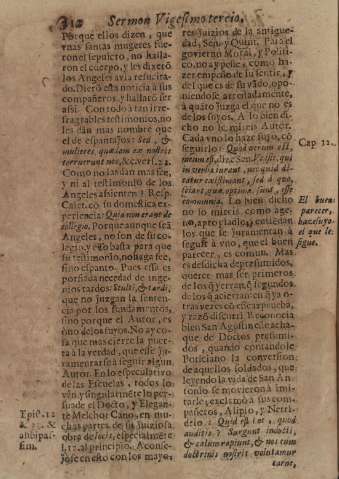 312 Sermon Vigesimotercio,
Porque ellos dizen, que
vnas santas mugeres fue-
ron el sepulcro, no halla-
ron el cuerpo, y les dixerõ
los Angeles avia resucita-
do. Dierõ esta noticia à sus
compañeros, y hallarõ ser
assi. Con todo à tan irre-
fragables testimonios, no
les dàn mas nombre que
el de espantajos: Sed, &
mulieres quædam ex nostris
terruerunt nos, &c. vers. 22.
Como no las dàn mas fee,
y ni al testimonio de los
Angeles assienten? Resp.
Caiet. cõ su domestica ex-
periencia: Quia non erant de
collegio. Porque aunque seã
Angeles, no son de su co-
legio, y esto basta para que
su testimonio, no haga fee,
sino espanto. Pues essa es
porfiada necedad de inge-
nios tardos: Stulti, & tardi,
que no juzgan la senten-
cia por los fundamentos,
sino porque el Autor, es
ò no de los suyos. No ay co-
sa que mas cierre la puer-
ta à la verdad, que esse ju-
ramentarse à seguir algun
Autor. En lo especulativo
de las Escuelas, todos lo
vèn, y singularmẽte lo per-
suade el Docto, y Elegan-
te Melchor Cano, en mu-
chas partes de su juiziosa
obra de locis, especialmẽte
l. 12. al principio. Aconse-
jose en esto con los mayo-
Epist. 12
& 33. &
alibi pas-
sim.
res juizios de la antigue-
dad, Sen. y Quint. Para el
govierno Moral, y Politi-
co, no ay peste, como ha-
zer empeño de su sentir, y
del que es de su vãdo, opo-
niendose, arrojadamente,
à quãto juzga el que no es
de los suyos. A lo bien di-
cho no le mireis Autor.
Cada vno lo haze suyo, cõ
seguirlo: Quod verum est,
meum est, dize Sen. Vt isti, qui
in verba iurant, nec quid di-
catur existimant, sed à quo,
sciant, quæ optima sunt, esse
communia. Lo bien dicho
no lo mireis como age-
no, apropiadlo, condenan
los que se juramentan à
seguir à vno, que el buen
parecer, es comun. Mas
es desdicha de presumidos,
querer mas ser, primeros
de los q̃ yerran, q̃ segundos
de los q̃ acierran en lo que ya o-
tras vezes cõ eficaz prueba,
y razõ discurri. Reconocia
bien San Agustin esse acha-
que de Doctos presumi-
dos, quando contandole
Poticiano la conversion
de aquellos soldados, que
leyendo la vida de San An-
tonio se movieron à imi-
tarle, exclamò à sus com-
pañeros, Alipio, y Netri-
dio: Quid est hoc, quod
audisti? Surgunt indocti,
& cælum rapiunt, & nos cum
doctrinis nostris volutamur
carne,
Cap 12.
El buen
parecer,
haze suyo
el que le
sigue.